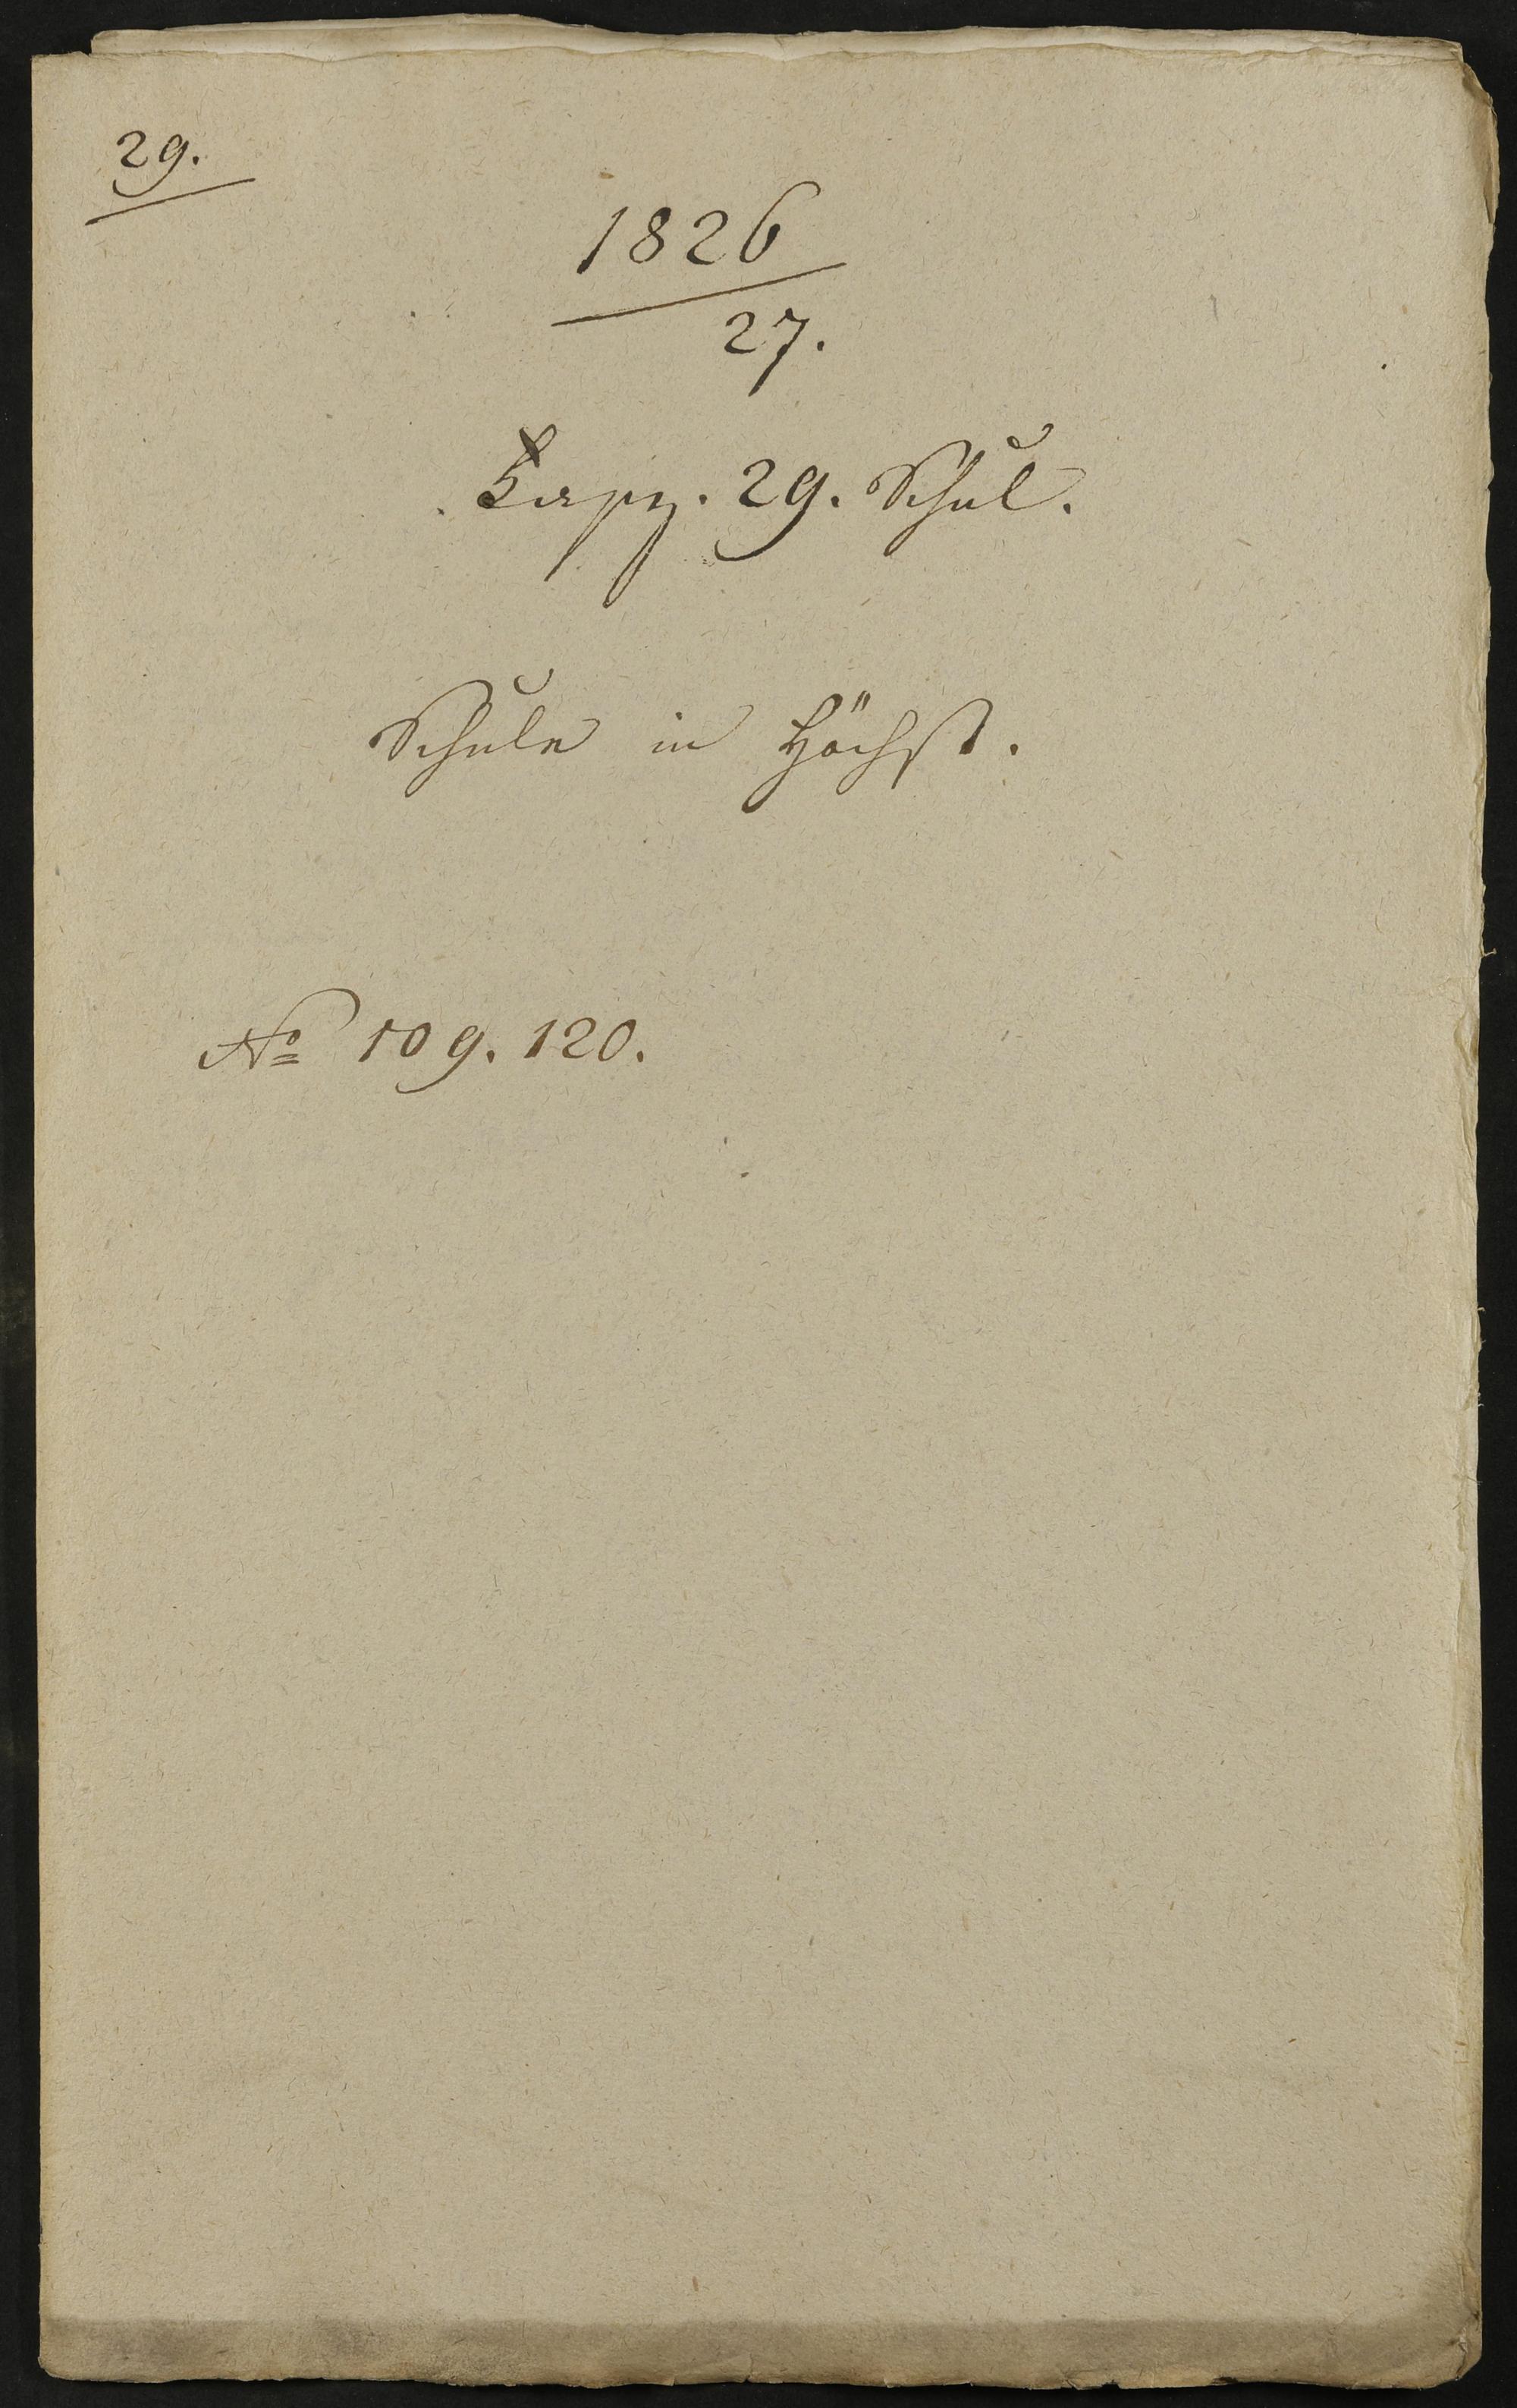 29.
1826
27.
29. Schul.
Schule in Höchst.
No 109. 120.